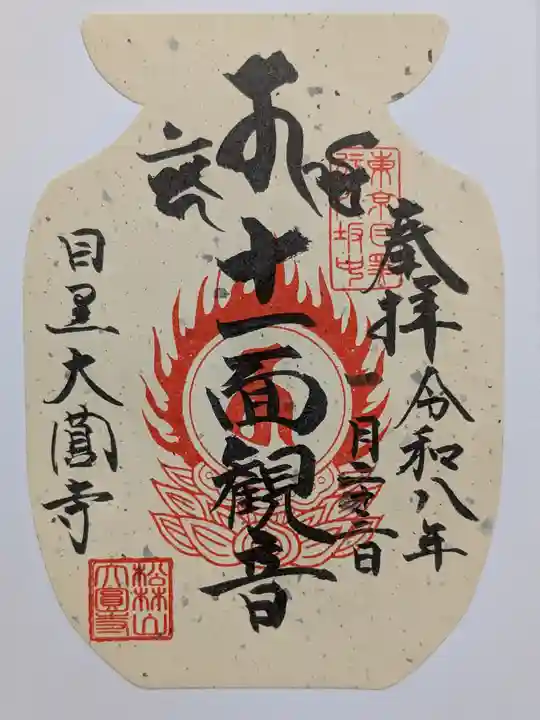 奉拝
令和八年
一月二十三日
十一面観音
目黒大圓寺
東京目黒
行人坂中
松林山
大圓寺